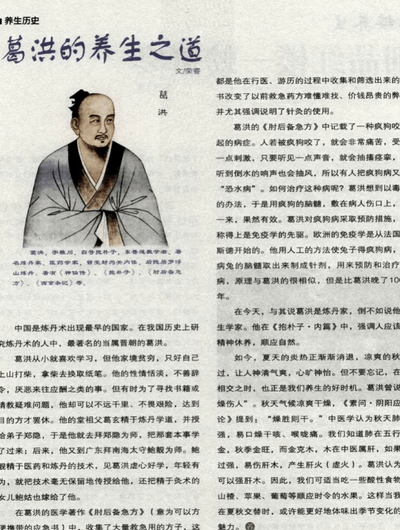 养生历史
葛洪的养生之道
文/荣蓉
葛洪
葛洪，字稚川，自号抱朴子，东晋道教学者、著
名炼丹家、医药学家，曾受封为关内侯，后隐居罗浮
山炼丹。著有《神仙传》、《抱朴子》、《肘后备急
方》、《西京杂记》等。
中国是炼丹术出现最早的国家。在我国历史上研
究炼丹的人中，最著名的当属晋朝的葛洪。
葛洪从小就喜欢学习，但他家境贫穷，只好自己
上山打柴，拿柴去换取纸笔。他的性情恬淡，不善辞
令，厌恶来往应酬之类的事。但有时为了寻找书籍或
请教疑难问题，他却可以不远千里、不畏艰险，达到
目的方才罢休。他的堂祖父葛玄精于炼丹学道，并授
给弟子郑隐，于是他就去拜郑隐为师，把那套本事学
了过来；后来，他又到广东拜南海太守鲍靓为师。鲍
靓精于医药和炼丹的技术，见葛洪虚心好学，年轻有
为，就把技术毫无保留地传授给他，还把精于灸术的
女儿鲍姑也嫁给了他。
在葛洪的医学著作《肘后备急方》（意为可以方
便携带的应急书）中，收集了大量救急用的方子，这
都是他在行医、游历的过程中收集和筛选出来的
书改变了以前救急药方难懂难找、价钱昂贵的弊
并尤其强调说明了针灸的使用。
葛洪的《肘后备急方》中记载了一种疯狗咬
起的病症。人若被疯狗咬了，就会非常痛苦，受
一点刺激，只要听见一点声音，就会抽搐痉挛，
听到倒水的响声也会抽风，所以有人把疯狗病又
“恐水病”。如何治疗这种病呢？葛洪想到以毒
的办法，于是用疯狗的脑髓，敷在病人伤口上，
一来，果然有效。葛洪对疯狗病采取预防措施，
称得上是免疫学的先驱。欧洲的免疫学是从法国
斯德开始的。他用人工的方法使兔子得疯狗病，
病兔的脑髓取出来制成针剂，用来预防和治疗
病，原理与葛洪的很相似，但是比葛洪晚了100
年。
在今天，与其说葛洪是炼丹家，倒不如说他
生学家。他在《抱朴子·内篇》中，强调人应该
精神休养，顺应自然。
如今，夏天的炎热正渐渐消退，凉爽的秋
过，让人神清气爽，心旷神怡。但不要忘记，在
相交之时，也正是我们养生的好时机。葛洪曾说
燥伤人”。秋天气候凉爽干燥，《素问·阴阳应
论》提到：“燥胜则干。”中医学认为秋天肺
强，易口燥干咳、喉咙痛。我们知道肺在五行
金，秋季金旺，而金克木，木在中医属肝，如果
过强，易伤肝木，产生肝火（虚火）。葛洪认为
可以强肝木。因此，我们可适当吃一些酸性食物
山楂、苹果、葡萄等顺应时令的水果。这样当我
在夏秋交替时，或许能更好地体味出季节变化的
魅力。